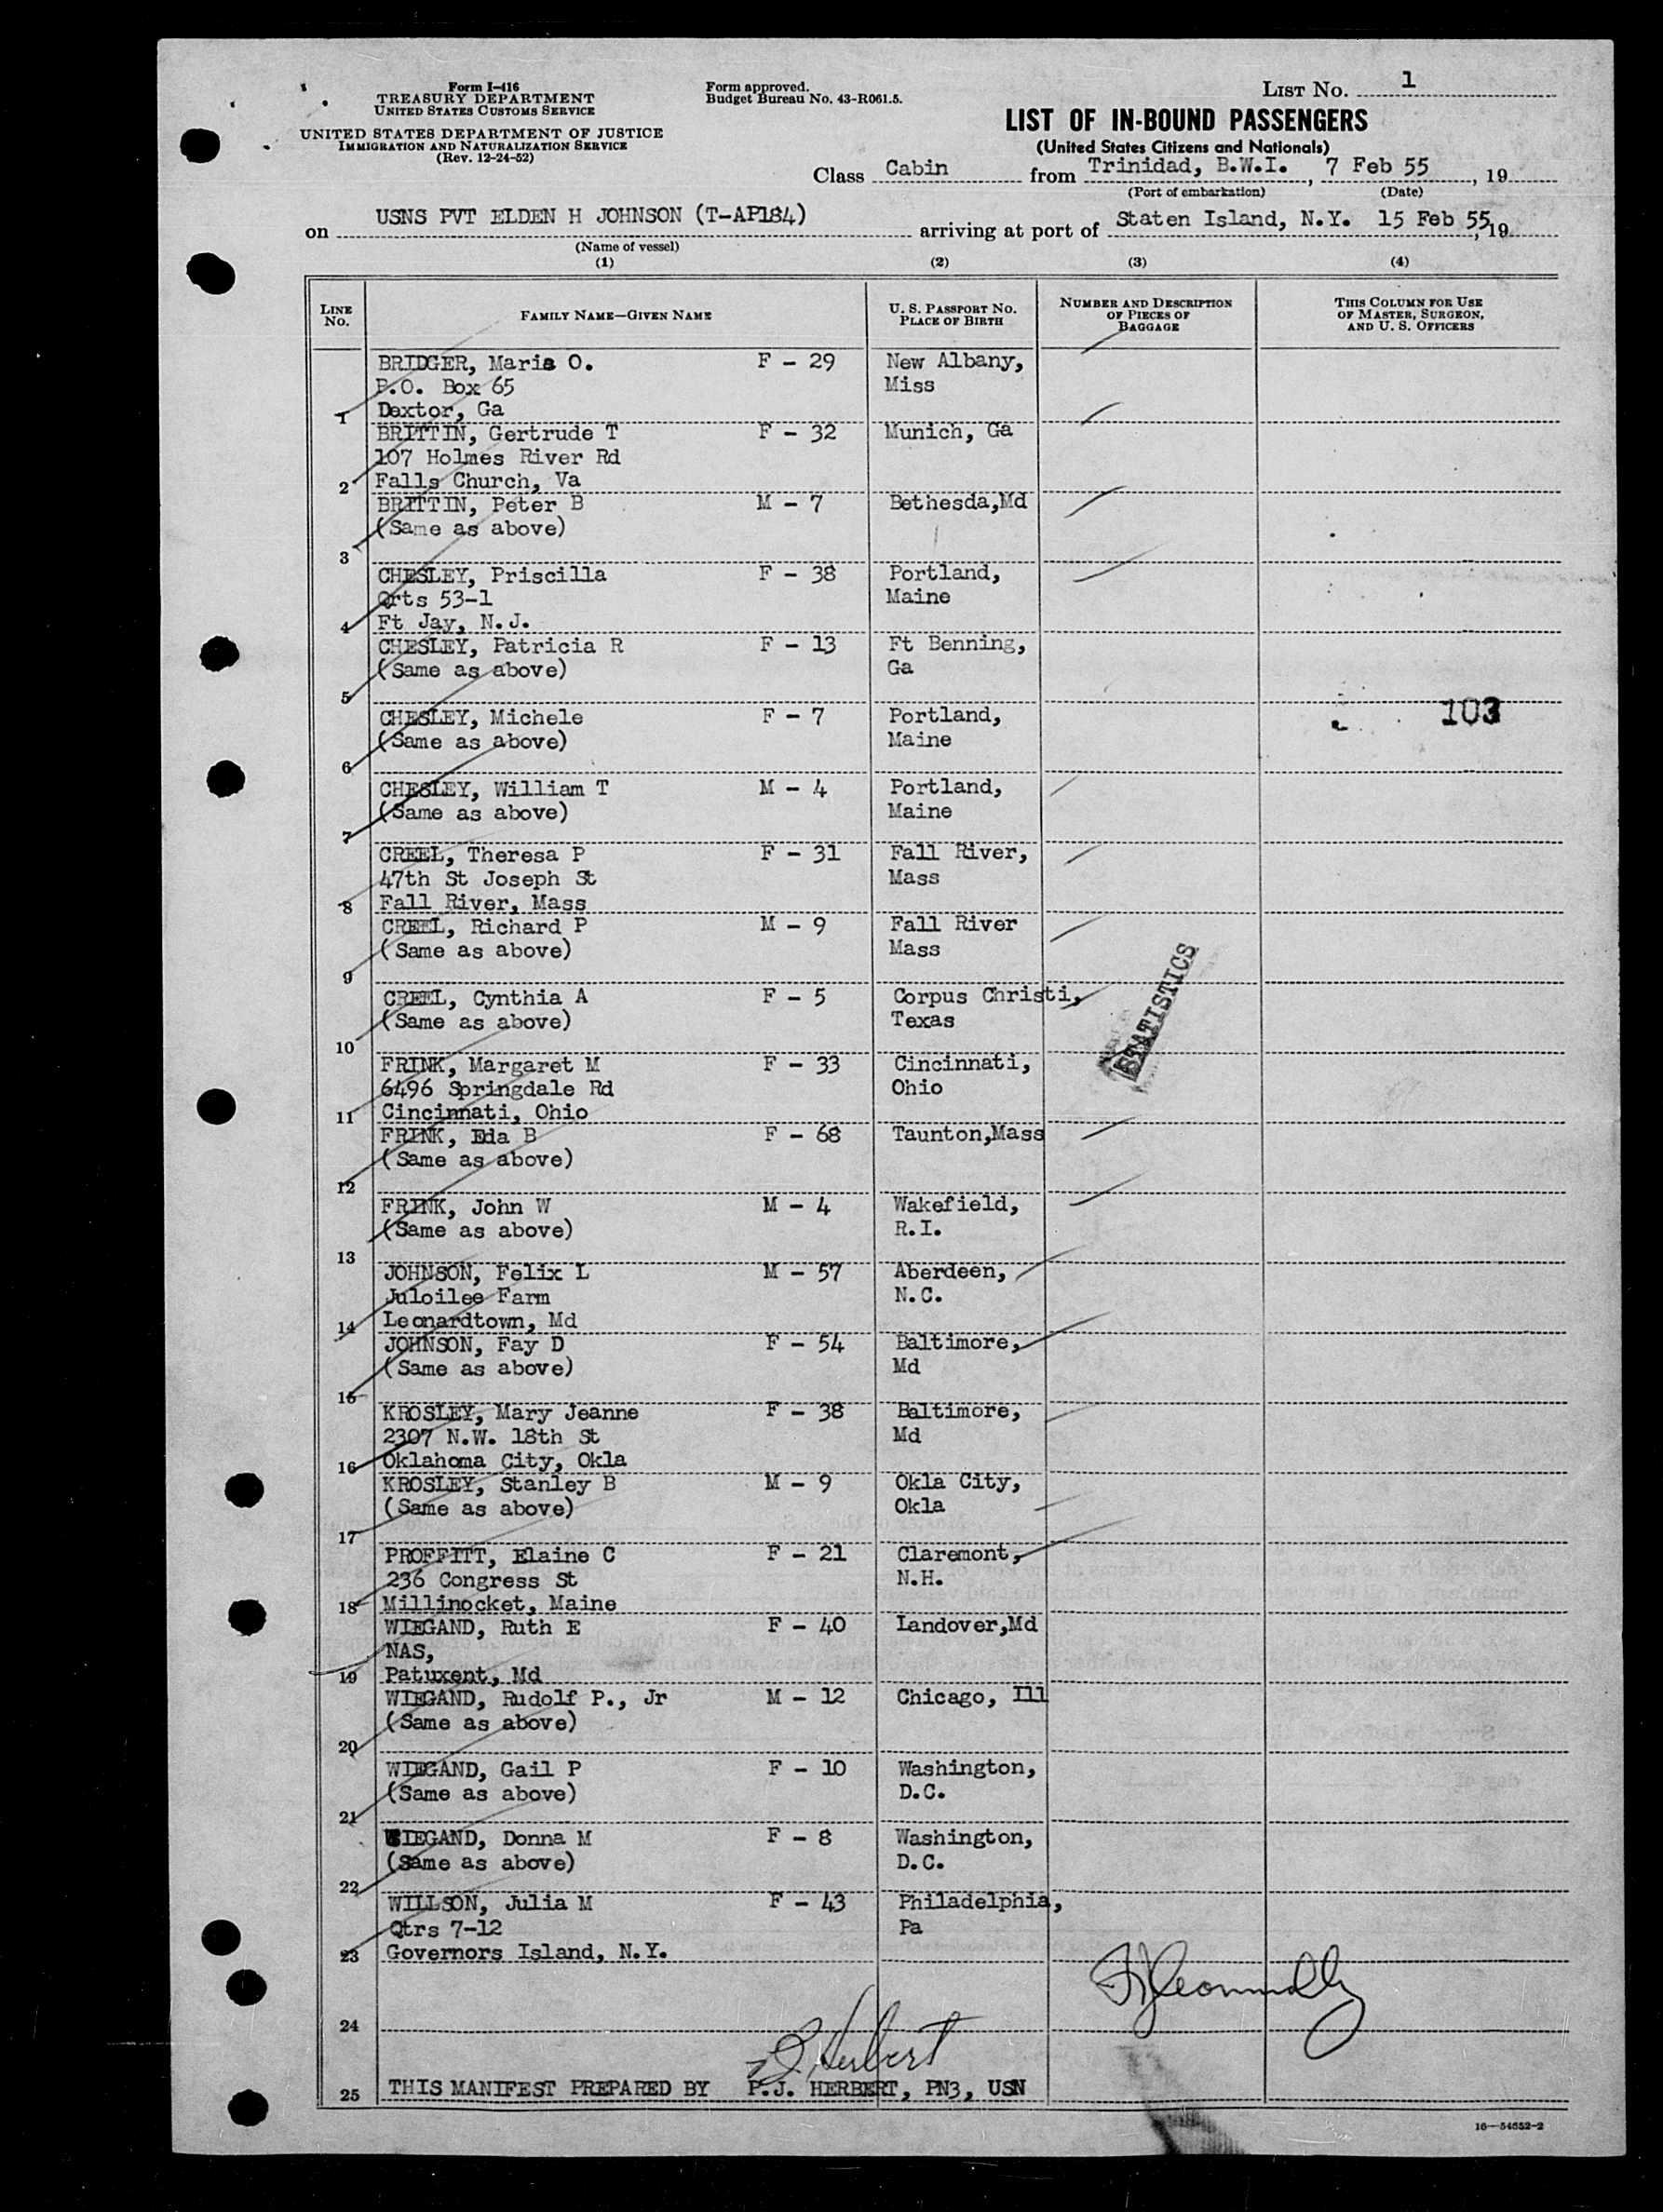 Form I-416
TREASURY DEPARTMENT
UNITED STATES CUSTOMS SERVICE
UNITED STATES DEPARTMENT OF JUSTICE
IMMIGRATION AND NATURALIZATION SERVICE
(Rev. 12-24-52)
Form approved.
Budget Bureau No. 43-R061.5.
LIST NO. 1
LIST OF IN-BOUND PASSENGERS
(United States Citizens and Nationals)
Class Cabin from Trinidad, B.W.I. , 7 Feb 55 , 19
(Port of embarkation) (Date)
on USNS PVT ELDEN H JOHNSON (T-AP184) arriving at port of Staten Island, N.Y. 15 Feb 55, 19
(Name of vessel)
(1) (2) (3) (4)
LINE NO. FAMILY NAME—GIVEN NAME U. S. PASSPORT NO. PLACE OF BIRTH NUMBER AND DESCRIPTION OF PIECES OF BAGGAGE THIS COLUMN FOR USE OF MASTER, SURGEON, AND U. S. OFFICERS
BRIDGER, Maria O. F - 29 New Albany,
P.O. Box 65 Miss
1 Dextor, Ga
BRITTIN, Gertrude T F - 32 Munich, Ga
107 Holmes River Rd
2 Falls Church, Va
BRITTIN, Peter B M - 7 Bethesda,Md
(Same as above)
3
CHESLEY, Priscilla F - 38 Portland,
Qrts 53-1 Maine
4 Ft Jay, N.J.
CHESLEY, Patricia R F - 13 Ft Benning,
(Same as above) Ga
5
CHESLEY, Michele F - 7 Portland, 103
(Same as above) Maine
6
CHESLEY, William T M - 4 Portland,
(Same as above) Maine
7
CREEL, Theresa P F - 31 Fall River,
47th St Joseph St Mass
8 Fall River, Mass
CREEL, Richard P M - 9 Fall River
(Same as above) Mass
9
CREEL, Cynthia A F - 5 Corpus Christi,
(Same as above) Texas
10
STATISTICS
FRINK, Margaret M F - 33 Cincinnati,
6496 Springdale Rd Ohio
11 Cincinnati, Ohio
FRINK, Eda B F - 68 Taunton,Mass
(Same as above)
12
FRINK, John W M - 4 Wakefield,
(Same as above) R.I.
13
JOHNSON, Felix L M - 57 Aberdeen,
Juloilee Farm N.C.
14 Leonardtown, Md
JOHNSON, Fay D F - 54 Baltimore,
(Same as above) Md
15
KROSLEY, Mary Jeanne F - 38 Baltimore,
2307 N.W. 18th St Md
16 Oklahoma City, Okla
KROSLEY, Stanley B M - 9 Okla City,
(Same as above) Okla
17
PROFFITT, Elaine C F - 21 Claremont,
236 Congress St N.H.
18 Millinocket, Maine
WIEGAND, Ruth E F - 40 Landover,Md
NAS,
19 Patuxent, Md
WIEGAND, Rudolf P., Jr M - 12 Chicago, Ill
(Same as above)
20
WIEGAND, Gail P F - 10 Washington,
(Same as above) D.C.
21
WIEGAND, Donna M F - 8 Washington,
(Same as above) D.C.
22
WILLSON, Julia M F - 43 Philadelphia,
Qtrs 7-12 Pa
23 Governors Island, N.Y.
24
Herbert
25 THIS MANIFEST PREPARED BY P.J. HERBERT, PN3, USN
16—54652-2